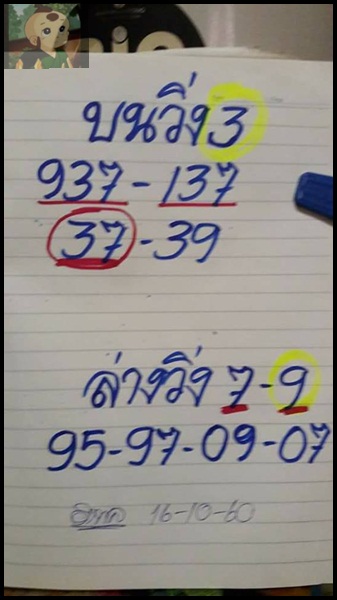 บนวิ่ง 3
937-137
37-39
ล่างวิ่ง 7-9
95-97-09-07
16-10-60